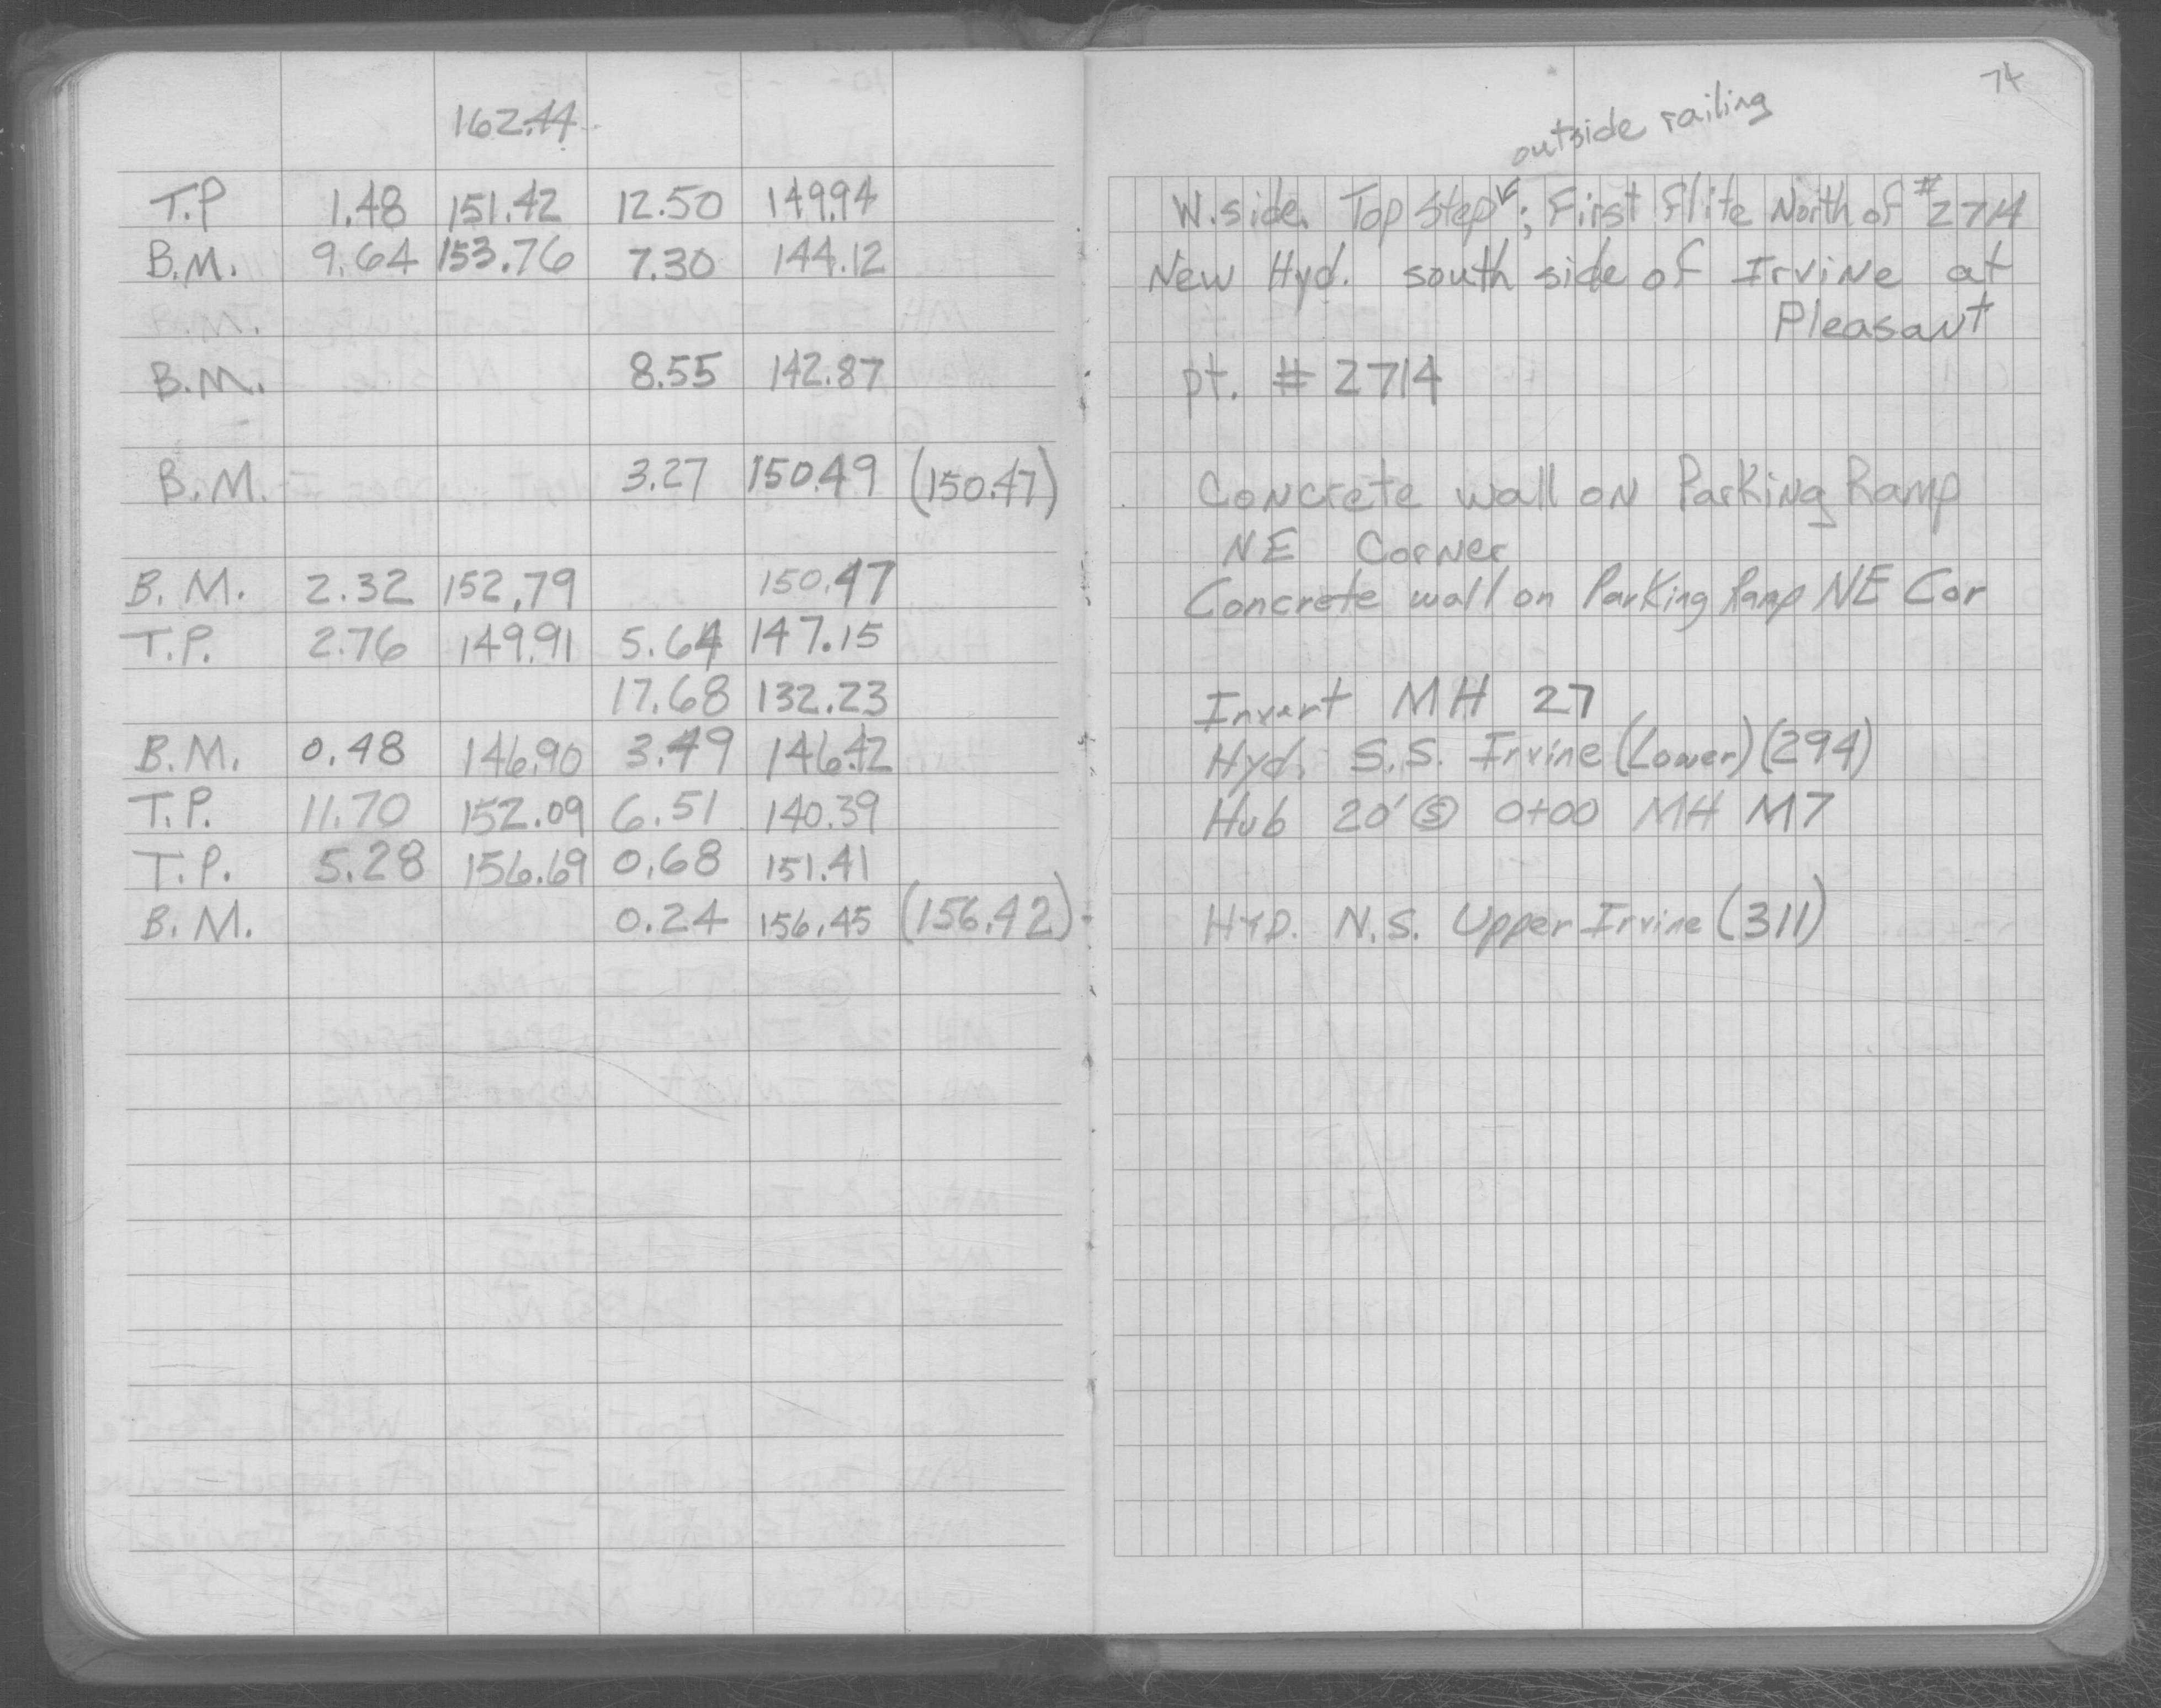 162.44
T.P 1.48 151.42 12.50 149.94
B.M. 9.64 153.76 7.30 144.12
B.M.
B.M. 8.55 142.87
B.M. 3.27 150.49 (150.47)
B.M. 2.32 152.79 150.47
T.P. 2.76 149.91 5.64 147.15
17.68 132.23
B.M. 0.48 146.90 3.49 146.42
T.P. 11.70 152.09 6.51 140.39
T.P. 5.28 156.69 0.68 151.41
B.M. 0.24 156.45 (156.42)
74
outside railing
W. side. Top Step ; First flite North of #2714
New Hyd. south side of Irvine at
Pleasant
pt. # 2714
Concrete wall on Parking Ramp
NE Corner
Concrete wall on Parking Ramp NE Cor
Invert MH 27
Hyd. S.S. Irvine (Lower) (294)
Hub 20' Ⓢ 0+00 MH M7
HYD. N.S. Upper Irvine (311)